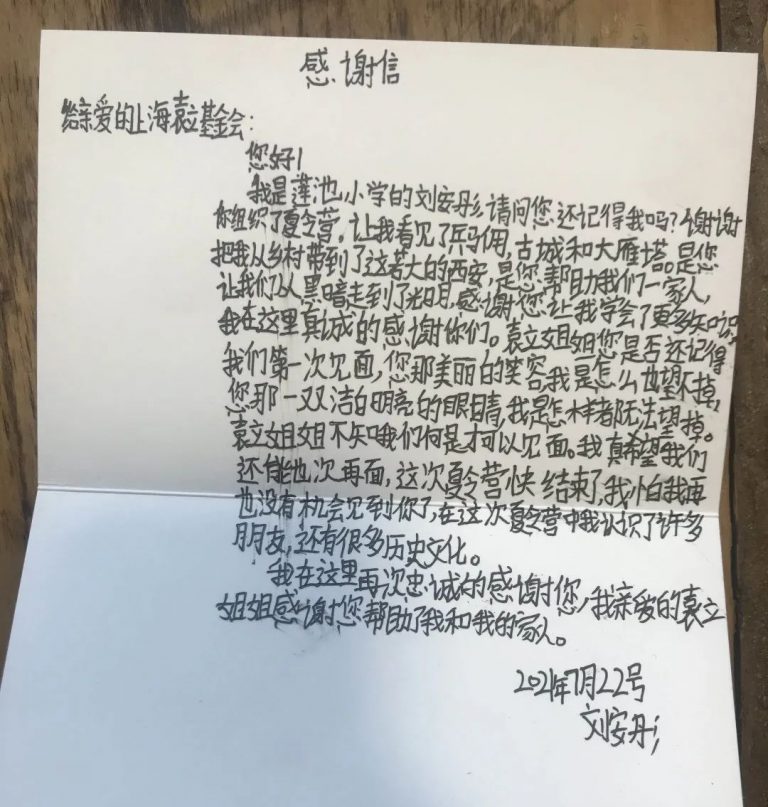 感谢信
给亲爱的上海袁立基金会:
您好!
我是莲池小学的刘安彤,请问您还记得我吗?谢谢
你组织了夏令营。让我看见了兵马俑,古城和大雁塔。是您
把我从乡村带到了这若大的西安,是您帮助我们一家人,
让我们从黑暗走到了光明,感谢您让我学会了更多知识,
我在这里真诚的感谢你们。袁立姐姐您是否还记得
我们第一次见面,您那美丽的笑容,我是怎么也望不掉,
您那一双洁白明亮的眼睛,我是怎样都无法望掉。
袁立姐姐不知哦我们何是才可以见面。我真希望我们
还能他次再面,这次夏令营快结束了,我怕我再
也没有机会见到你了,在这次夏令营中我认识了许多
朋友,还有很多历史文化。
我在这里再次忠诚的感谢您,我亲爱的袁立
姐姐感谢您帮助了我和我的家人。
2021年7月22号
刘安彤